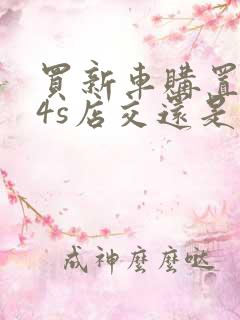 買新車購置
4s店交還是
成神麼麼噠